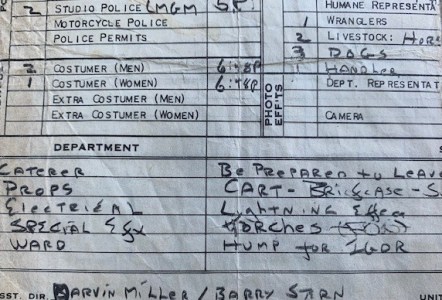 2 STUDIO POLICE (MGM 5P. HUMANE REPRESENTA
MOTORCYCLE POLICE 1 WRANGLERS
POLICE PERMITS 2 LIVESTOCK: HORS
3 DOGS
2 COSTUMER (MEN) 6:48P 1 HANDLER
1 COSTUMER (WOMEN) 6:48P DEPT. REPRESENTAT
EXTRA COSTUMER (MEN) PHOTO EFF'TS
EXTRA COSTUMER (WOMEN) CAMERA
DEPARTMENT
CATERER BE PREPARED to LEAVE
PROPS CART - BRIEFCASE - S
ELECTRICAL LIGHTNING Effec
SPECIAL Efx TORCHES
WARD HUMP for IGOR
SST. DIR. MARVIN MILLER / BARRY STERN UNIT